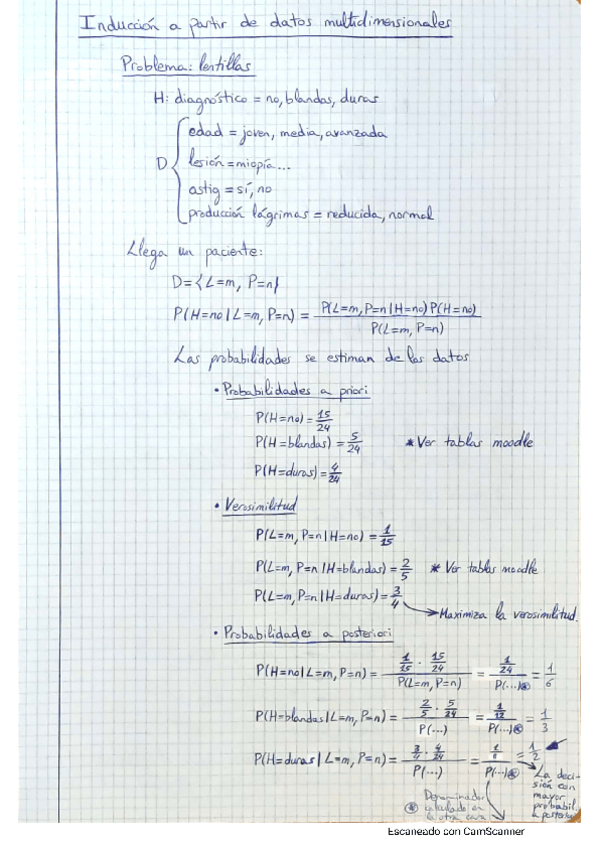 Inducción a partir de datos multidimensionales
Problema: lentillas
H: diagnóstico = no, blandas, duras
D { edad = joven, media, avanzada
lesión = miopía...
astig = sí, no
producción lágrimas = reducida, normal
Llega un paciente:
D = {L=m, P=n}
P(H=no | L=m, P=n) = P(L=m, P=n | H=no) P(H=no) / P(L=m, P=n)
Las probabilidades se estiman de los datos
• Probabilidades a priori
P(H=no) = 15/24
P(H=blandas) = 5/24 * Ver tablas moodle
P(H=duras) = 4/24
• Verosimilitud
P(L=m, P=n | H=no) = 1/15
P(L=m, P=n | H=blandas) = 2/5 * Ver tablas moodle
P(L=m, P=n | H=duras) = 3/4 → Maximiza la verosimilitud.
• Probabilidades a posteriori
P(H=no | L=m, P=n) = 1/15 · 15/24 / P(L=m, P=n) = 1/24 / P(...)⊛ = 1/6
P(H=blandas | L=m, P=n) = 2/5 · 5/24 / P(...) = 1/12 / P(...)⊛ = 1/3
P(H=duras | L=m, P=n) = 3/4 · 4/24 / P(...) = 1/8 / P(...)⊛ = 1/2
La deci-
sión con
mayor
probabil.
a posteriori
⊛ Denominador
calculado en
la otra cara
Escaneado con CamScanner